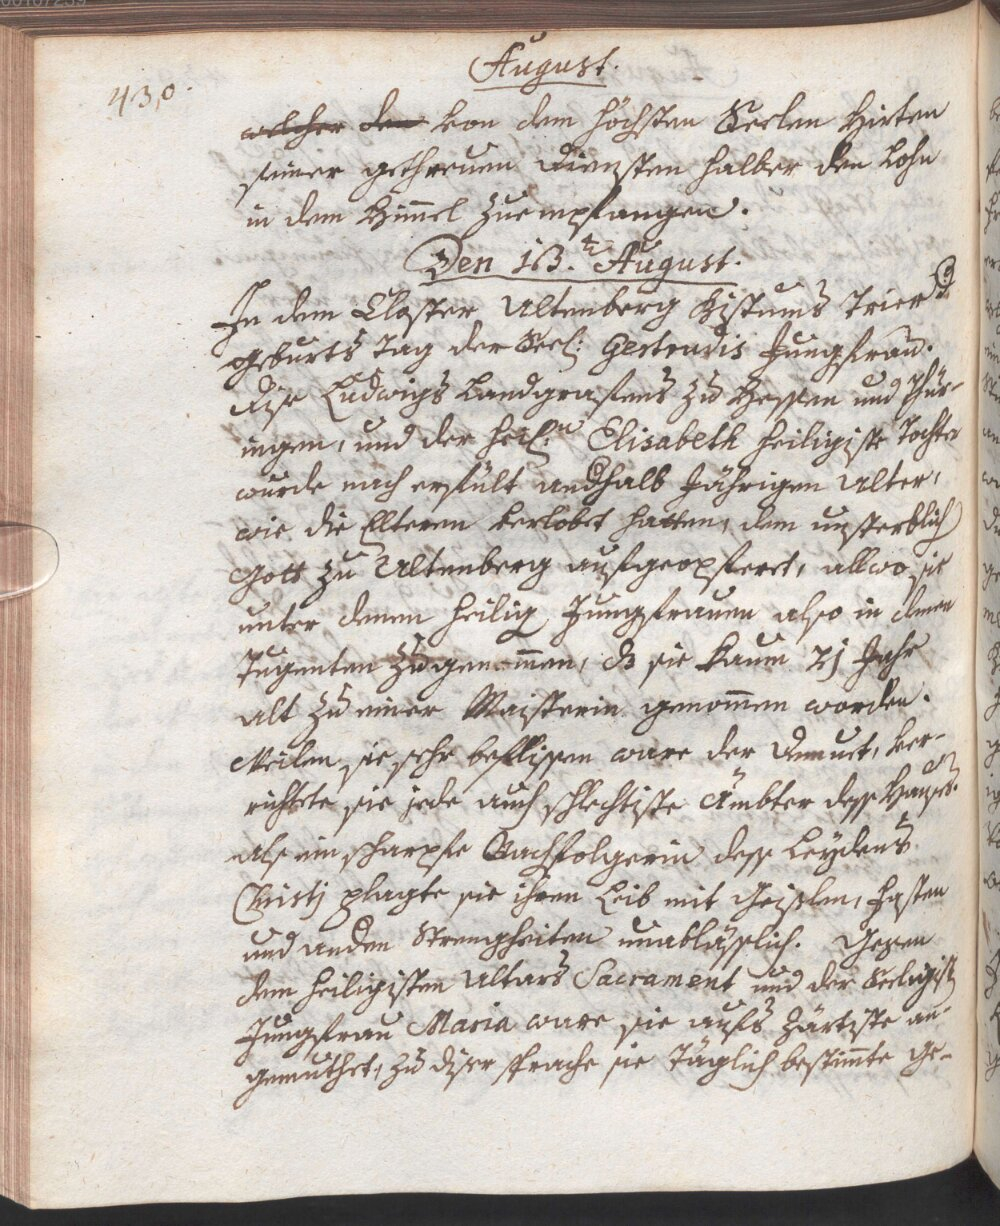 August.
430.
welcher den von dem höchsten Seelen Hirten
seiner getreuen Diensten halber den Lohn
in dem Himel zuempfangen.
Den 13.t August.
In dem Closter Altenberg Bistums Trier
geburts Tag der Seel: Gertrudis Jungfrau.
dise Ludwigs Landgrafens zu Hessen und Thür-
ingen, und der heil:n Elisabeth heiligiste Tochter
wurde nach erfült andhalb Jährigen Alter,
wie die Elteren verlobet hatten, dem unsterblich
Gott zu Altenberg aufgeopferet, allwo sie
unter denen heilig Jungfrauen also in denen
Tugenten zugenommen, dß sie kaum 21 Jahr
alt zu einer Maisterin genommen worden.
Weilen sie sehr beflissen ware der Demuet, ver-
richtete sie jede auch schlechtiste Ämbter dess Hauses.
als ein scharpfe Nachfolgerin dess Leydens
Christj plagte sie ihren Leib mit Geißlen, Fasten
und anden Strengheiten unabläßlich. Gegen
dem heiligisten Altars Sacrament und der Seeligist
Jungfrau Maria ware sie aufs Zärtiste an-
gemuthet, zu diser sprache sie täglich bestimte Ge-